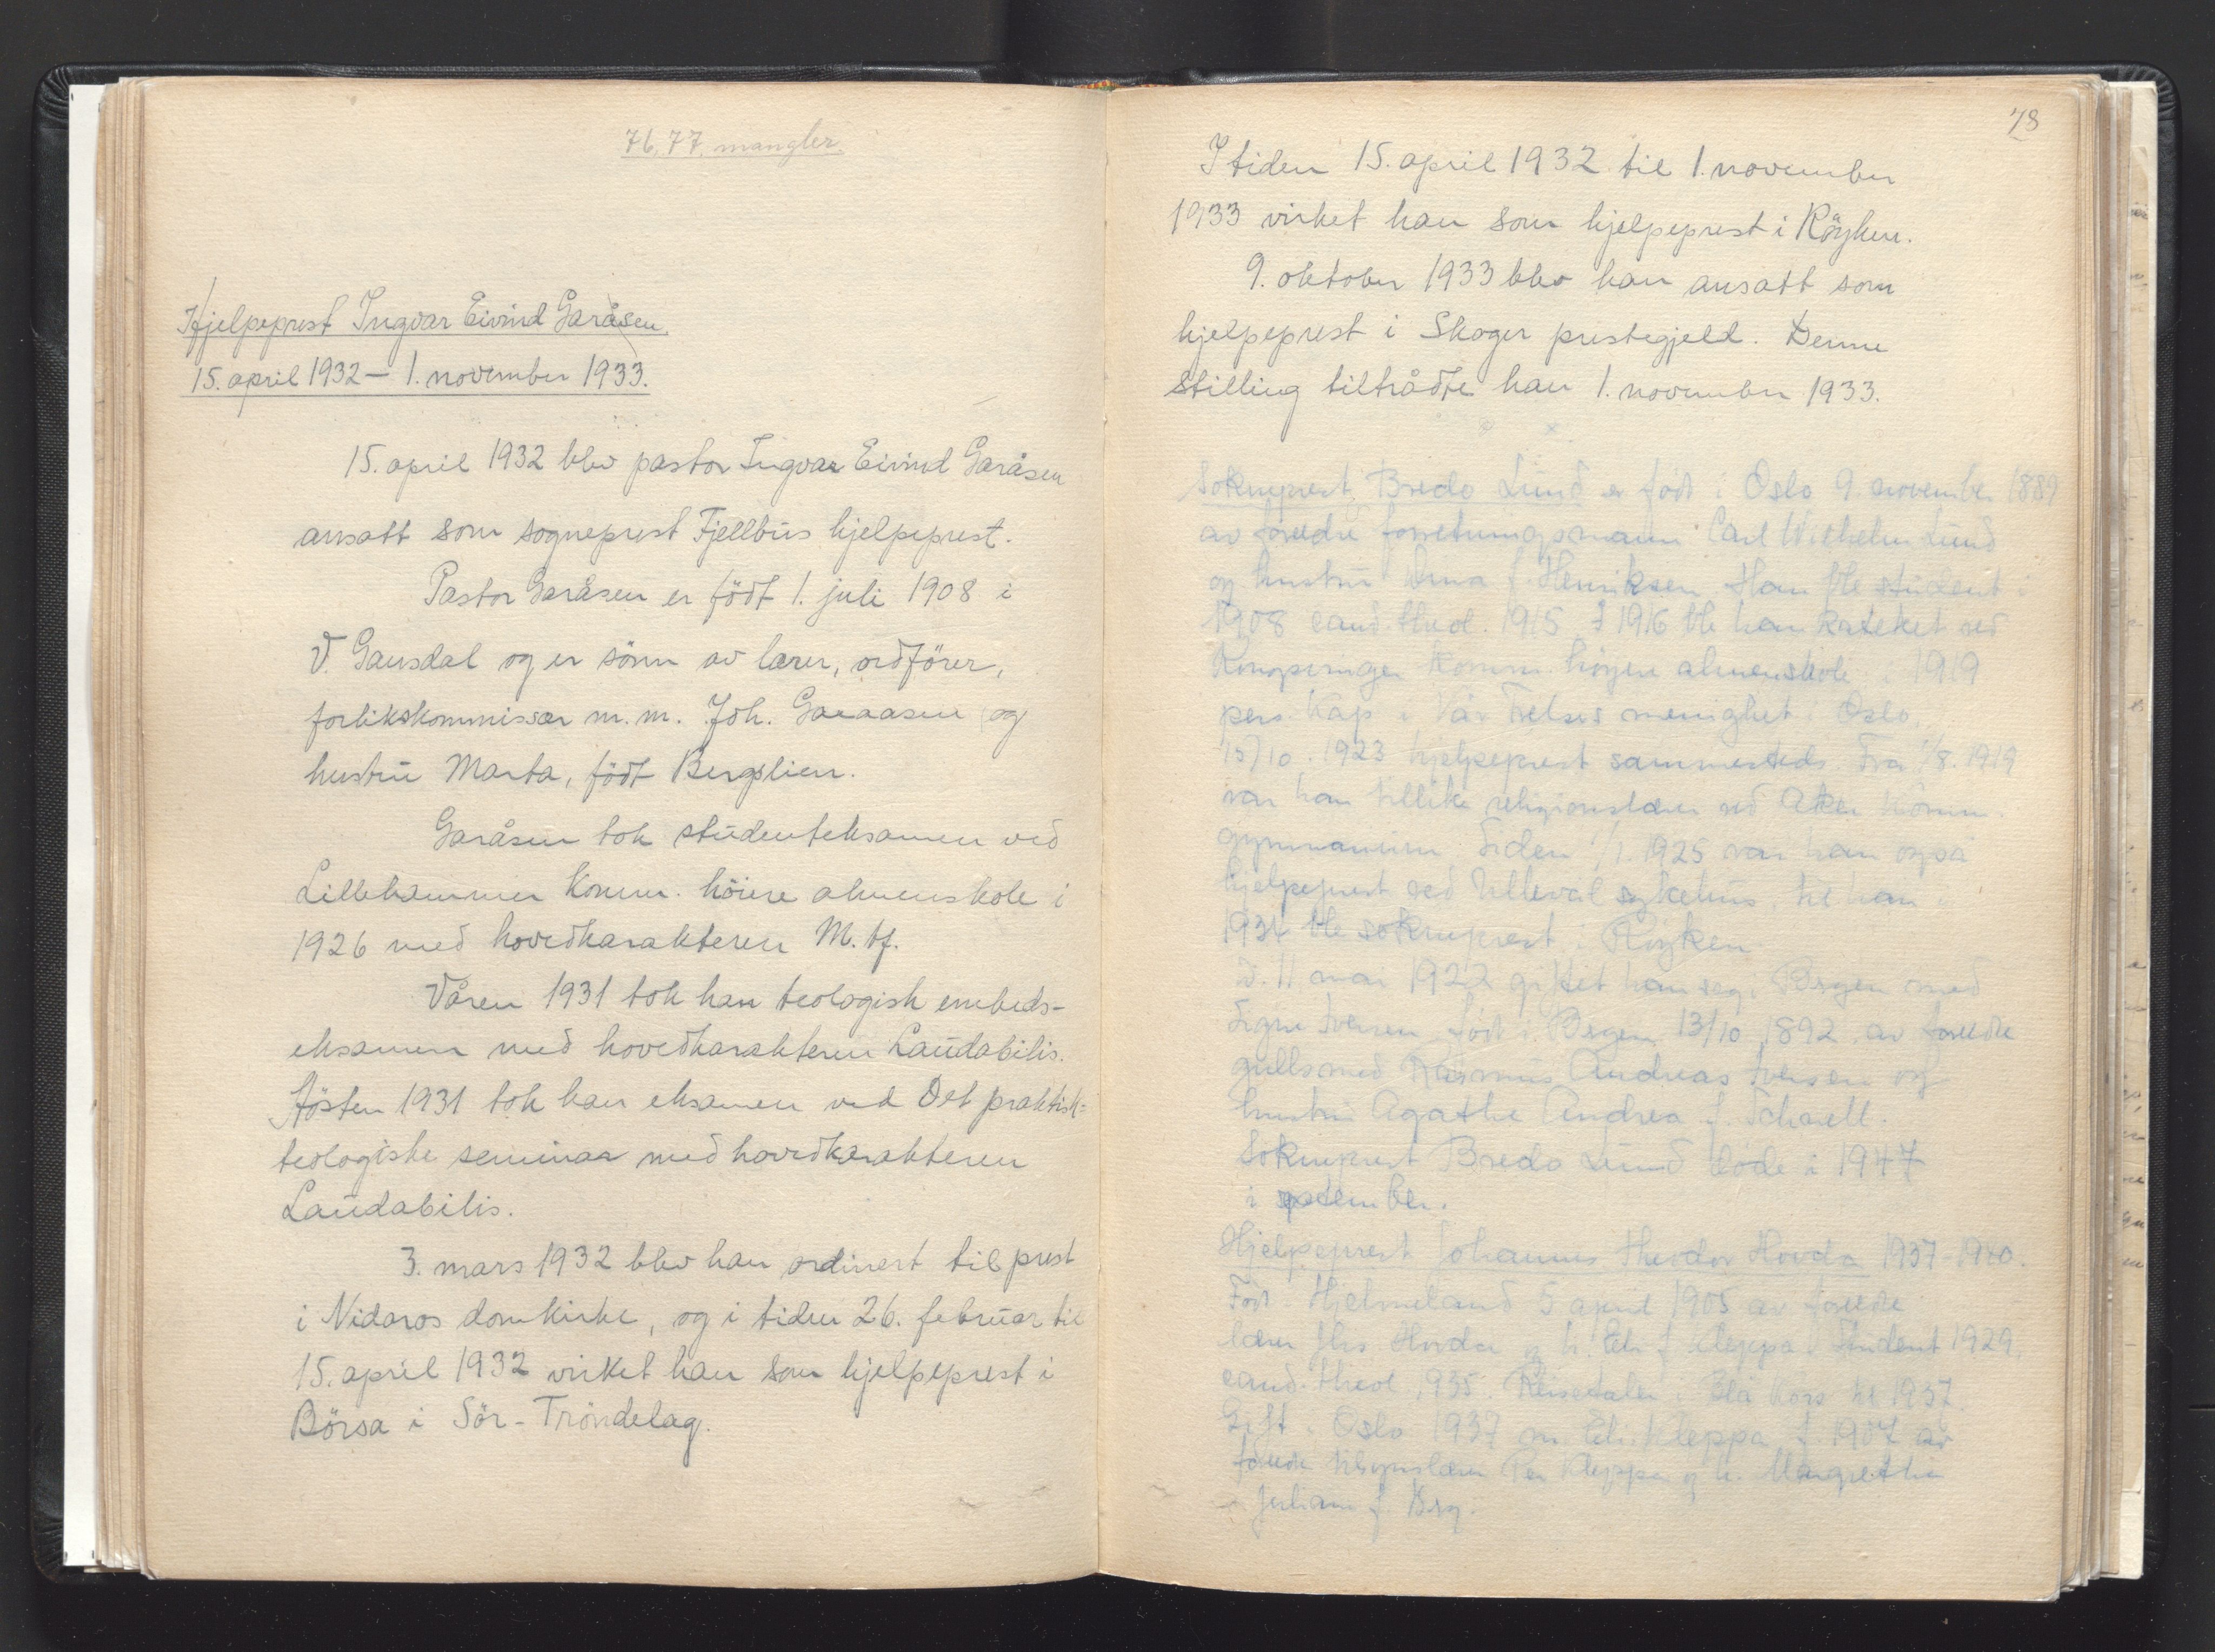 76, 77, mangler.
Hjelpeprest Ingvar Eivind Garåsen.
15. april 1932 – 1. november 1933.
15. april 1932 blev pastor Ingvar Eivind Garåsen
ansatt som sogneprest Fjellbus hjelpeprest.
Pastor Garåsen er födt 1. juli 1908 i
V. Gausdal og er sönn av lærer, ordförer,
forlikskommissær m.m. Joh. Garaasen og
hustru Marta, födt Bergslien.
Garåsen tok studenteksamen ved
Lillehammer Komm. höiere almenskole i
1926 med hovedkarakteren M. tf.
Våren 1931 tok han teologisk embeds-
eksamen med hovedkarakteren Laudabilis.
Hösten 1931 tok han eksamen ved Det praktisk-
teologiske seminar med hovedkarakteren
Laudabilis.
3. mars 1932 blev han ordinert til prest
i Nidaros domkirke, og i tiden 26. februar til
15. april 1932 virket han som hjelpeprest i
Börsa i Sör-Tröndelag.
78
I tiden 15. april 1932 til 1. november
1933 virket han som hjelpeprest i Röyken.
9. oktober 1933 blev han ansatt som
hjelpeprest i Skoger prestegjeld. Denne
stilling tiltrådte han 1. november 1933.
Sokneprest Bredo Lund er född i Oslo 9. november 1889
av foreldre forretningsmann Carl Wilhelm Lund
og hustru f. Henriksen. Han ble student i
1908 cand. theol. 1915. I 1916 ble han kateket ved
Kongsvinger Komm. höyere almenskole i 1919
pers. Kap. i Vår Frelses menighet i Oslo.
15/10. 1923 hjelpeprest sammesteds. Fra 1/8. 1919
var han tillike religionslærer ved Aker Komm.
gymnasium. Siden 1/1. 1925 var han også
hjelpeprest ved Ullevål sykehus, til han i
1934 ble sokneprest i Röyken
D. 11 mai 1922 giftet han seg i Bergen med
Signe Iversen, född i Bergen 13/10 1892 av foreldre
gullsmed Rasmus Andreas Iversen og
hustru Agathe Andrea f. Schnell.
Sokneprest Bredo Lund döde i 1947
i september.
Hjelpeprest Johannes Theodor Hovda 1937-1940.
Född i Hjelmeland 5 april 1905 av foreldre
lærer Hovda og h. Eli f. Kleppa. Student 1929,
cand. theol. 1935. Reisetaler i Blå Kors til 1937.
Gift i Oslo 1937 m. Eli Kleppa f. 1907 av
foreldre Per Kleppa og h. Margrethe
f. Berg.